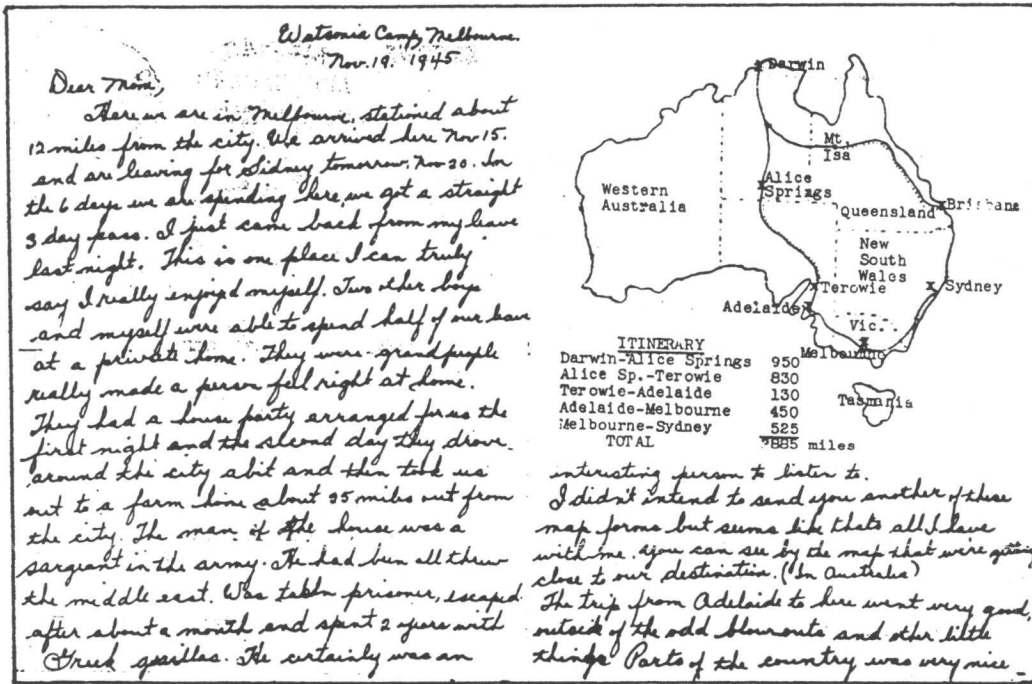 Watsonia Camp, Melbourne.
Nov. 19. 1945
Dear Mom,
Here we are in Melbourne, stationed about
12 miles from the city. We arrived here Nov 15.
and are leaving for Sidney tomorrow, Nov 20. In
the 6 days we are spending here we got a straight
3 day pass. I just came back from my leave
last night. This is one place I can truly
say I really enjoyed myself. Two other boys
and myself were able to spend half of our leave
at a private home. They were grand people
really made a person fell right at home.
They had a house party arranged for us the
first night and the second day they drove
around the city a bit and then took us
out to a farm home about 35 miles out from
the city. The man of the house was a
sargeant in the army. He had been all threw
the middle east. Was taken prisoner, escaped
after about a month and spent 2 years with
Greek guarillas. He certainly was an
Darwin
Mt.
Isa
Alice
Springs
Western
Australia
Queensland
Brisbane
New
South
Wales
Terowie
Sydney
Adelaide
Vic.
Melbourne
Tasmania
ITINERARY
Darwin-Alice Springs 950
Alice Sp.-Terowie 830
Terowie-Adelaide 130
Adelaide-Melbourne 450
Melbourne-Sydney 525
TOTAL 2885 miles
interesting person to listen to.
I didn't intend to send you another of these
map forms but seems like thats all I have
with me. You can see by the map that we're getting
close to our destination. (In Australia)
The trip from Adelaide to here went very good,
outside of the odd blowouts and other little
things Parts of the country was very nice